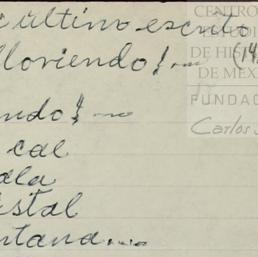 último escrito
lloviendo!...
(14
ndo!...
cal
ala
istal
ntana...
CENTRO
DE HI
DE MÉX
FUNDAC
Carlos S